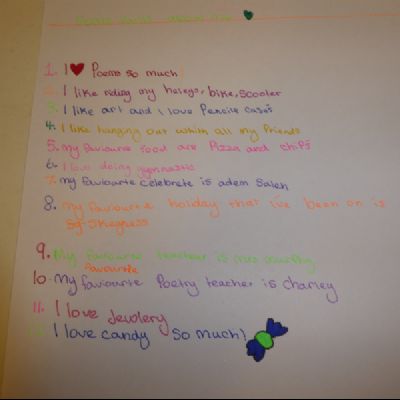 about me
1. I ♥ Poems so much!
2. I like riding my heleys, bike, scooter
3. I like art and i love Pencile cases
4. I like hanging out whith all my friends
5. my favioure food are Pizza and chips
6. I love doing gymnastis
7. my favioarte celebrete is adem Saleh
8. my faviourte holiday that i've been on is
Skegness
9. My favourte teacher is mrs
favourite
10. My faviourte Poetry teacher is charley
11. I love Jewlery
12. I love candy so much!